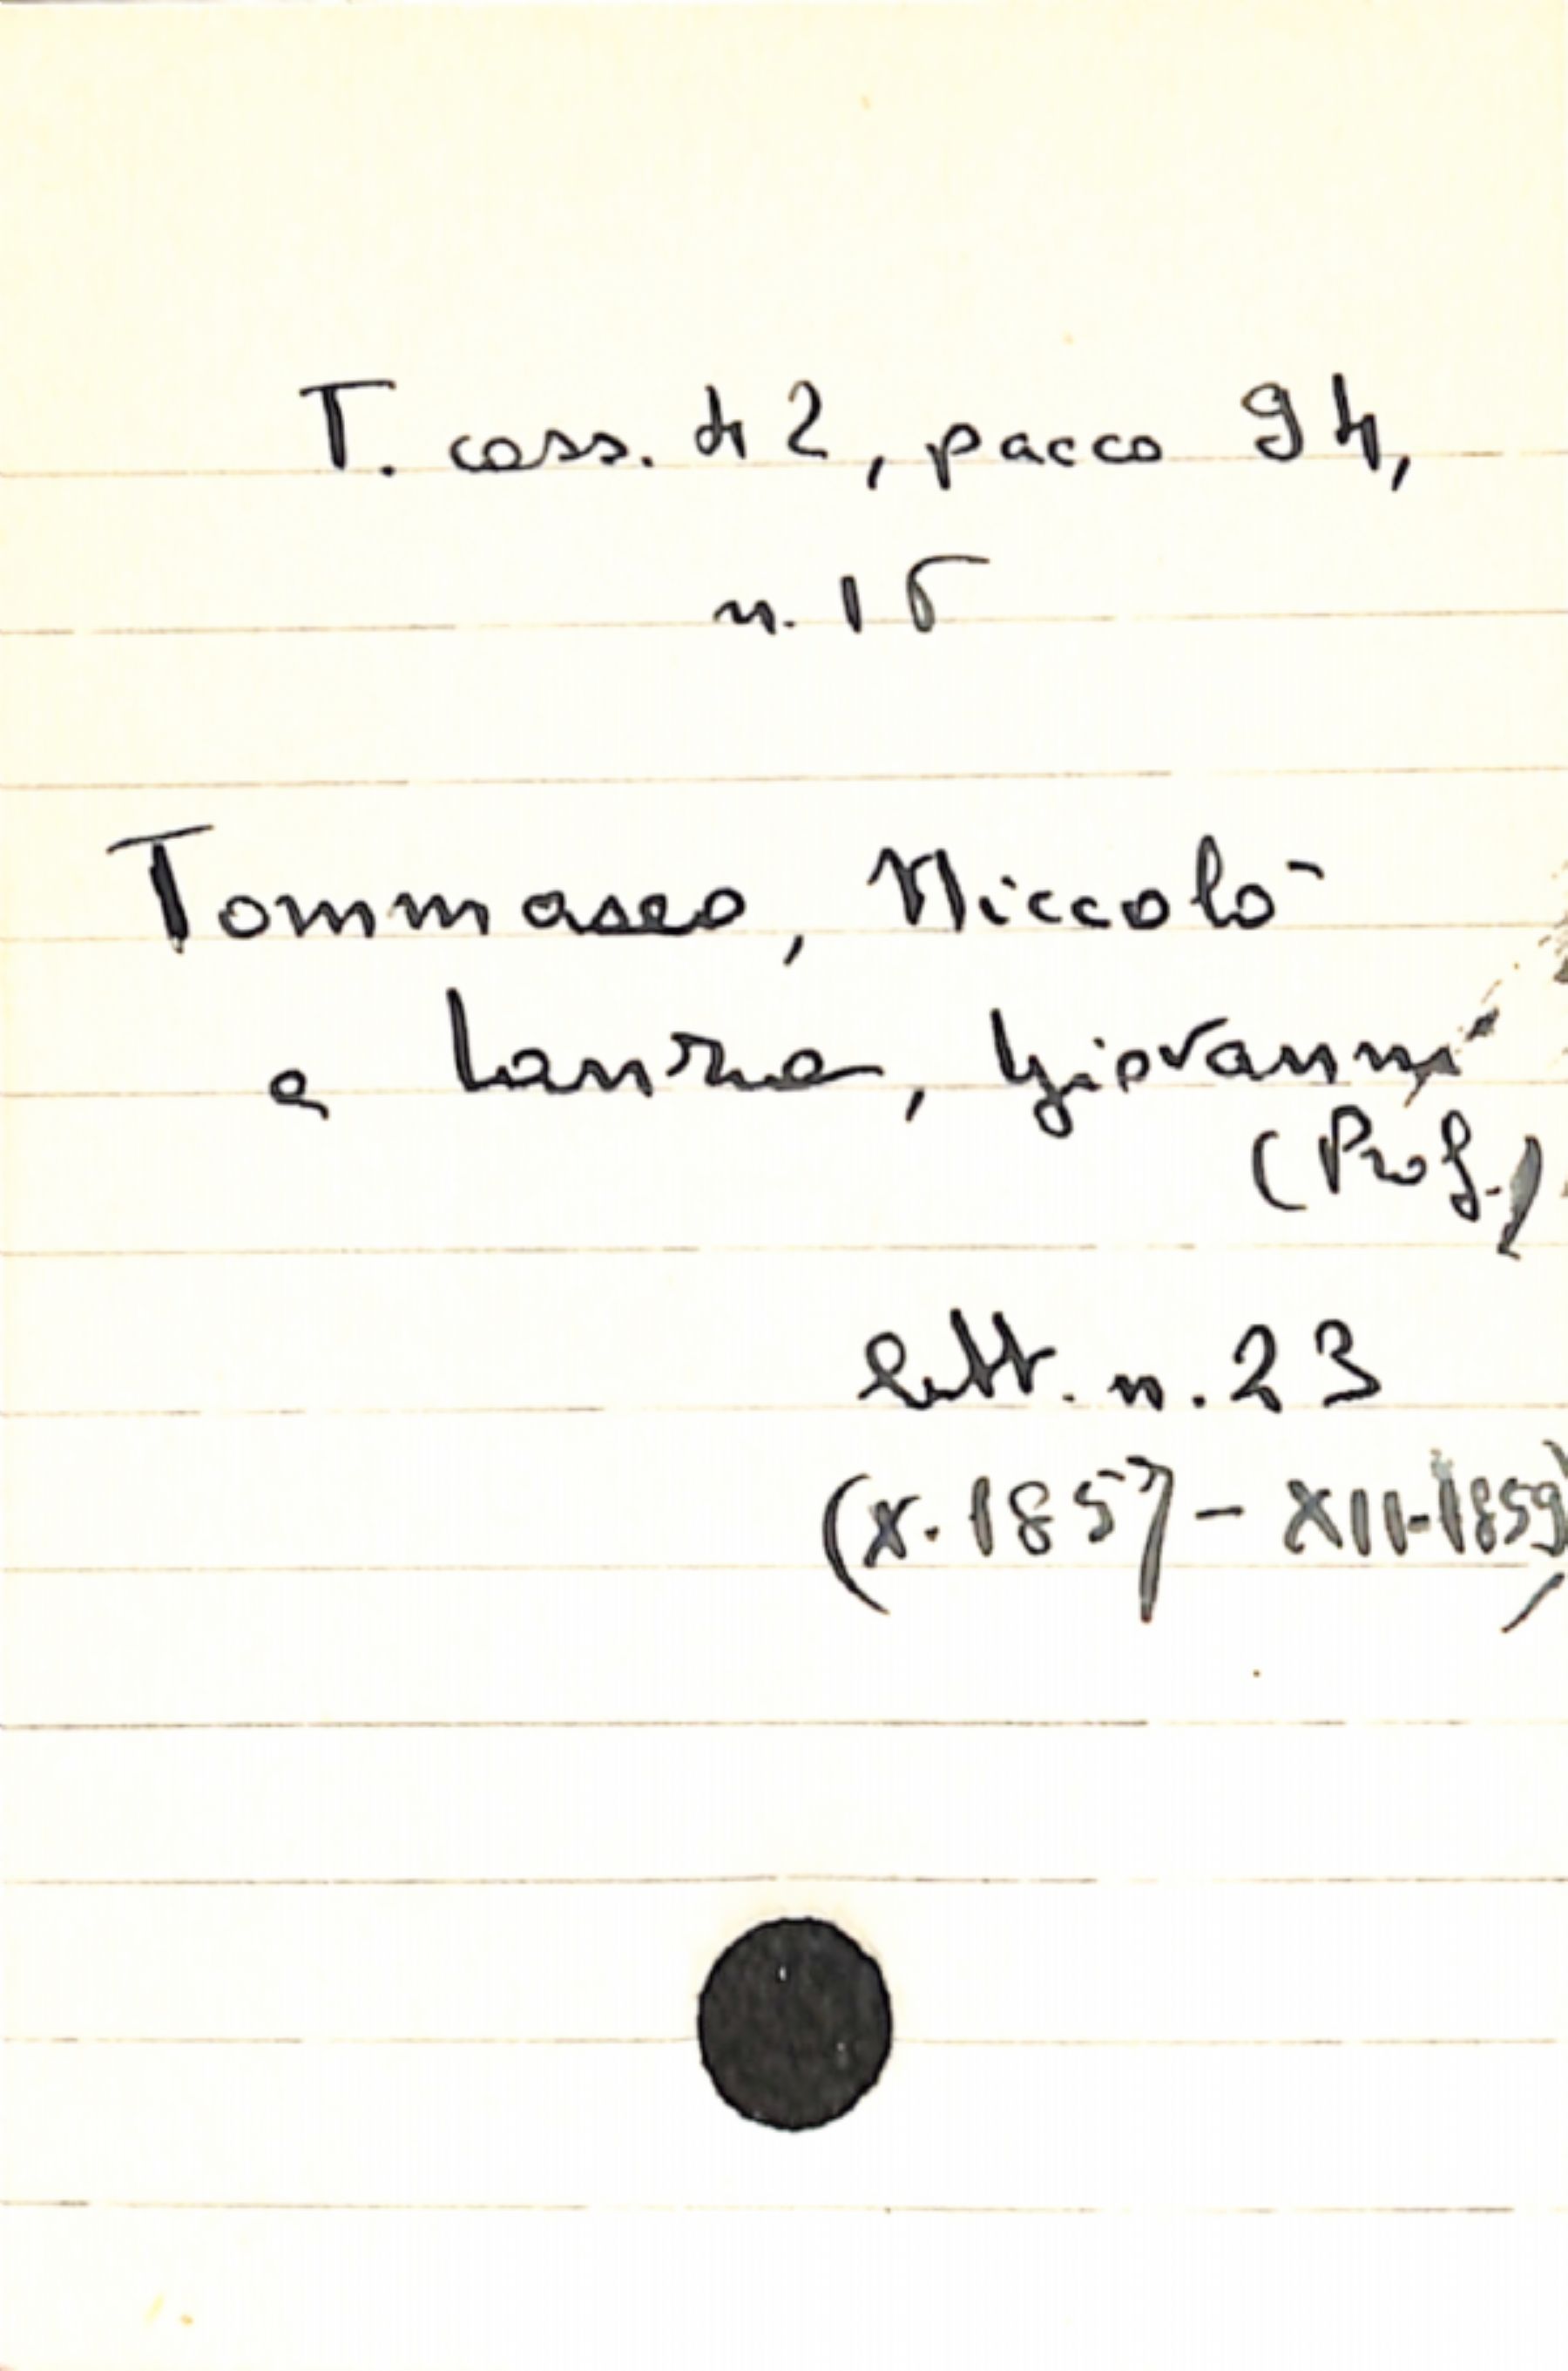 T. cass. 42, pacco 94,
n. 15
Tommaseo, Niccolò
a Lanza, Giovanni
(Prof.)
lett. n. 23
(X. 1857 - XII. 1859)